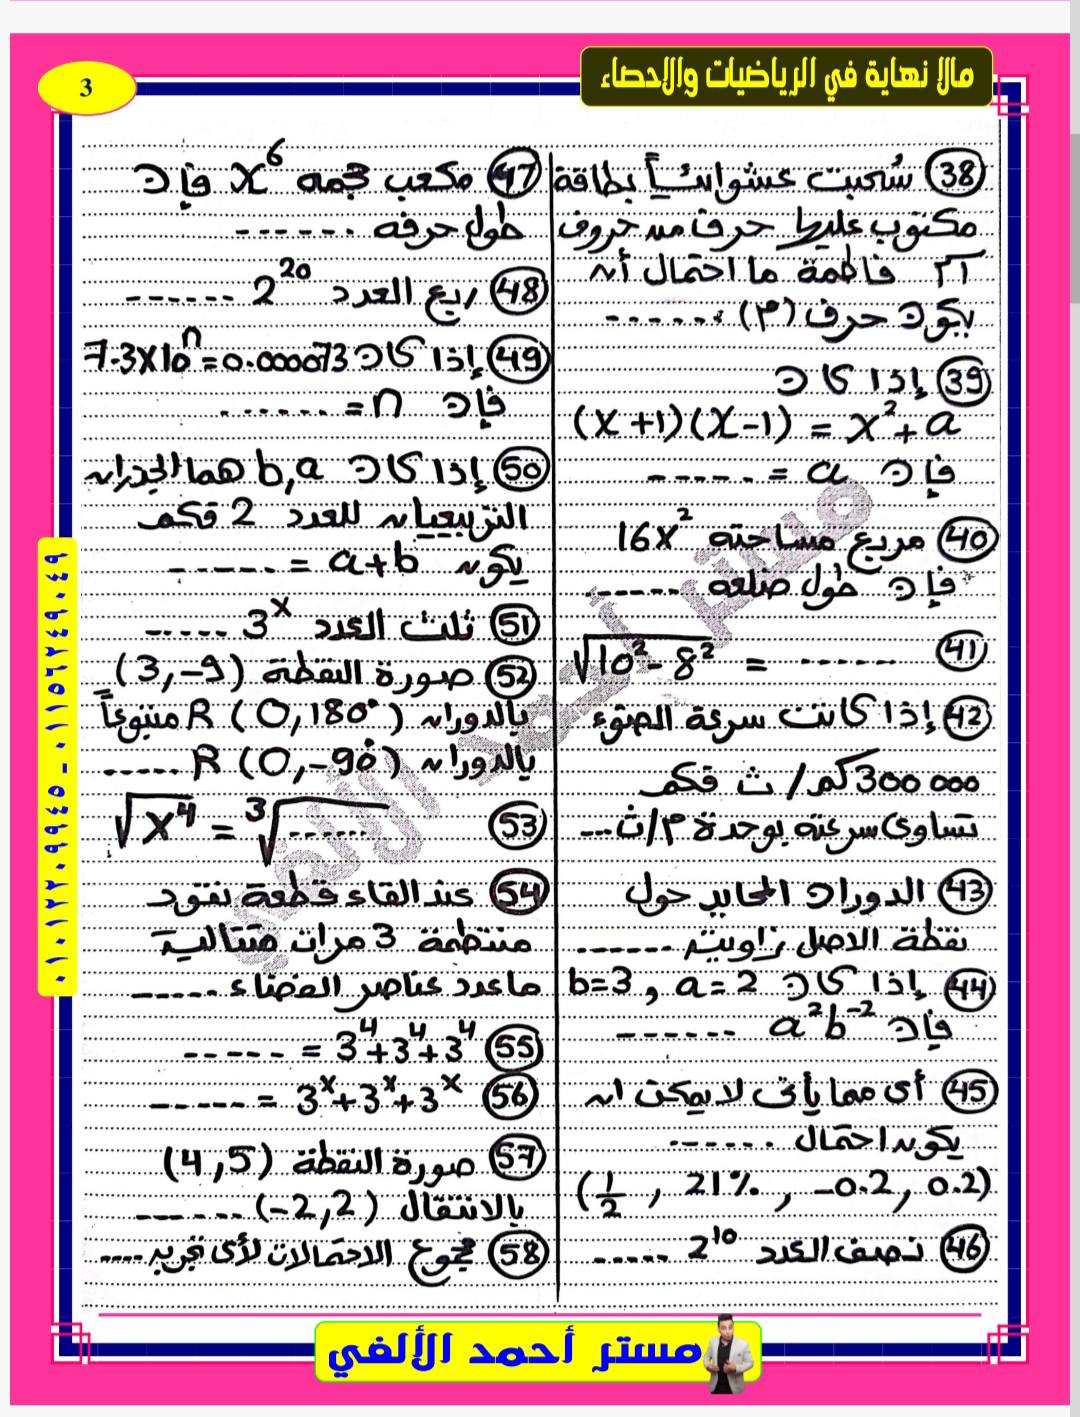 مالا نهاية في الرياضيات والإحصاء
3
38 سُحبت عشوائياً بطاقة
مكتوب عليها حرف من حروف
اسم فاطمة ما احتمال أن
يكون حرف (م) ......
39 إذا كان
(x+1)(x-1) = x²+a
فإن a = ------
40 مربع مساحته 16x²
فإن طول ضلعه ------
41 √10²-8² = ------
42 إذا كانت سرعة الضوء
300 000 كم/ث فكم
تساوى سرعته بوحدة م/ث ---
43 الدوران المحايد حول
نقطة الأصل زاويته ------
44 إذا كان a=2 , b=3
فإن a²b⁻² ------
45 أى مما يأتى لا يمكن أن
يكون احتمال ------
(1/2 , 21% , -0.2 , 0.2)
46 نصف العدد 2¹⁰ -----
47 مكعب حجمه x⁶ فإن
طول حرفه ------
48 ربع العدد 2²⁰ ------
49 إذا كان 7.3×10ⁿ=0.000073
فإن n= ------
50 إذا كان b,a هما الجذران
التربيعيان للعدد 2 فكم
يكون a+b = ------
51 ثلث العدد 3ˣ -----
52 صورة النقطة (3,-9)
بالدوران R (0,180°) متبوعاً
بالدوران R (0,-90°) -----
53 √x⁴ = ³√------
54 عند القاء قطعة نقود
منتظمة 3 مرات متتالية
ما عدد عناصر الفضاء -----
55 3⁴+3⁴+3⁴ = -----
56 3ˣ+3ˣ+3ˣ = -----
57 صورة النقطة (4,5)
بالانتقال (-2,2) ------
58 مجموع الاحتمالات لأى تجربة ----
٠١٠١٢٢٠٩٩٤٥ - ٠١١٥٦٢٤٩٠٤٩
مستر أحمد الألفي
مستر أحمد الألفي